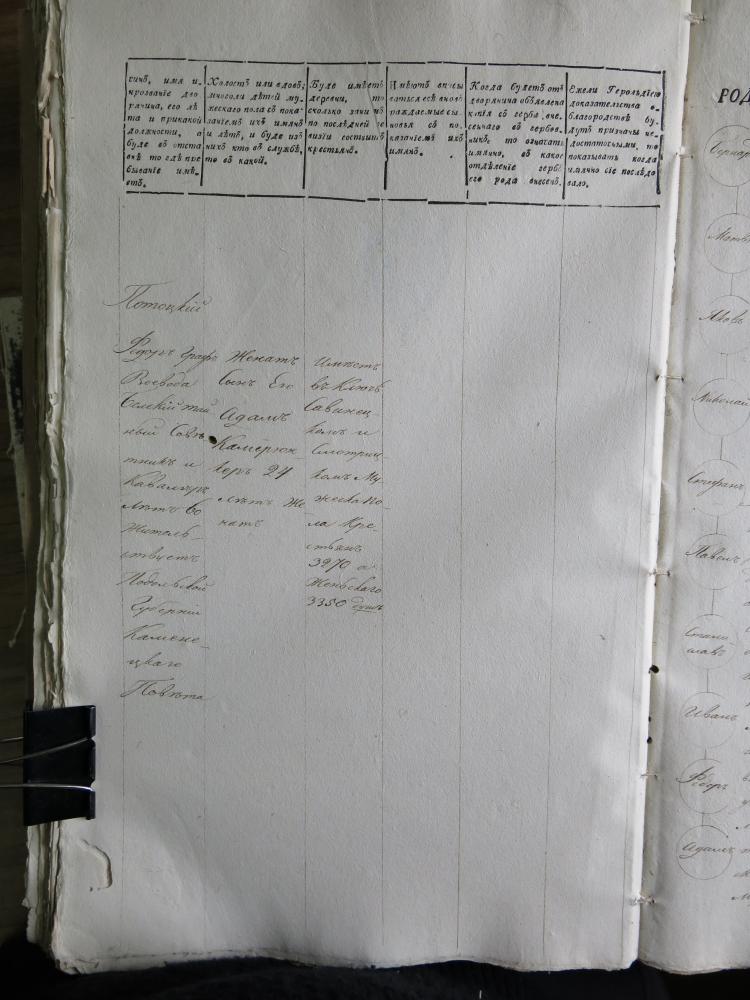 чинъ, имя и
прозваніе дво
рянина, его лѣ
та и при какой
должности, а
буде въ отста
вкѣ то гдѣ пре
бываніе имѣ
етъ.
Холостъ или вдовъ;
многоли дѣтей му
жескаго пола съ пока
заніемъ ихъ имянъ
и лѣтъ, и буде изъ
нихъ кто въ службѣ,
то въ какой.
Буде имѣетъ
деревни, то
сколько за нимъ
по послѣдней ре
визіи состоитъ
крестьянъ.
Имѣютъ вписы
ваться всѣ вновь
раждаемые сы
новья съ по
казаніемъ ихъ
имянъ.
Когда будетъ отъ
дворянина объявлена
копія съ герба, вне
сеннаго въ гербов
никъ, то означать
имянно, въ какое
отдѣленіе гербъ
его рода внесенъ.
Ежели Герольдіею
доказательства о
благородствѣ бу
дутъ признаны не
достаточными, то
показывать когда
имянно сіе послѣдо
вало.
Потоцкій
Федоръ Графъ
Воевода
Белскій тай
ный Совѣ
тникъ и
Кавалеръ
лѣтъ 60
Жительствуетъ
Подольской
Губерніи
Камене
цкаго
Повѣта
Женатъ
сынъ Его
Адамъ
Камерюн
керъ 24
лѣтъ Же
натъ
Имѣетъ
въ Ключѣ
Савинец
комъ и
Смотриц
комъ Му
жеска по
ла Кре
стьянъ
3970 а
Женьскаго
3350 душъ
РОД
Николай
Стефанъ
Павелъ
Стани
славъ
Иванъ
Федоръ
Адамъ